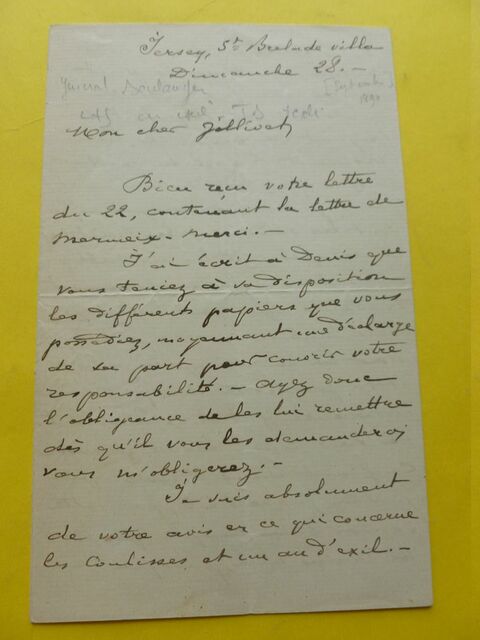 Jersey, St Brelade villa
Dimanche 28. -
Général Boulanger
[Septembre
1890
en exil
Mon cher
Bien reçu votre lettre
du 22, contenant la lettre de
Mermeix - Merci. -
J'ai écrit à Denis que
vous teniez à sa disposition
les différents papiers que vous
possédiez, moyennant une décharge
de sa part pour couvrir votre
responsabilité. - Ayez donc
l'obligeance de les lui remettre
dès qu'il vous les demandera;
vous m'obligerez. -
Je suis absolument
de votre avis en ce qui concerne
les Coulisses et un an d'exil. -